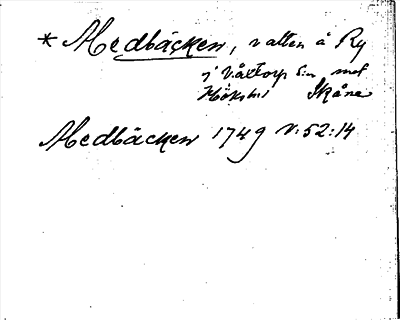 * Medbäcken, vatten å Ry
i Våxtorp sn mot
Hökshs Skåne
Medbäcken 1749 V:52:14